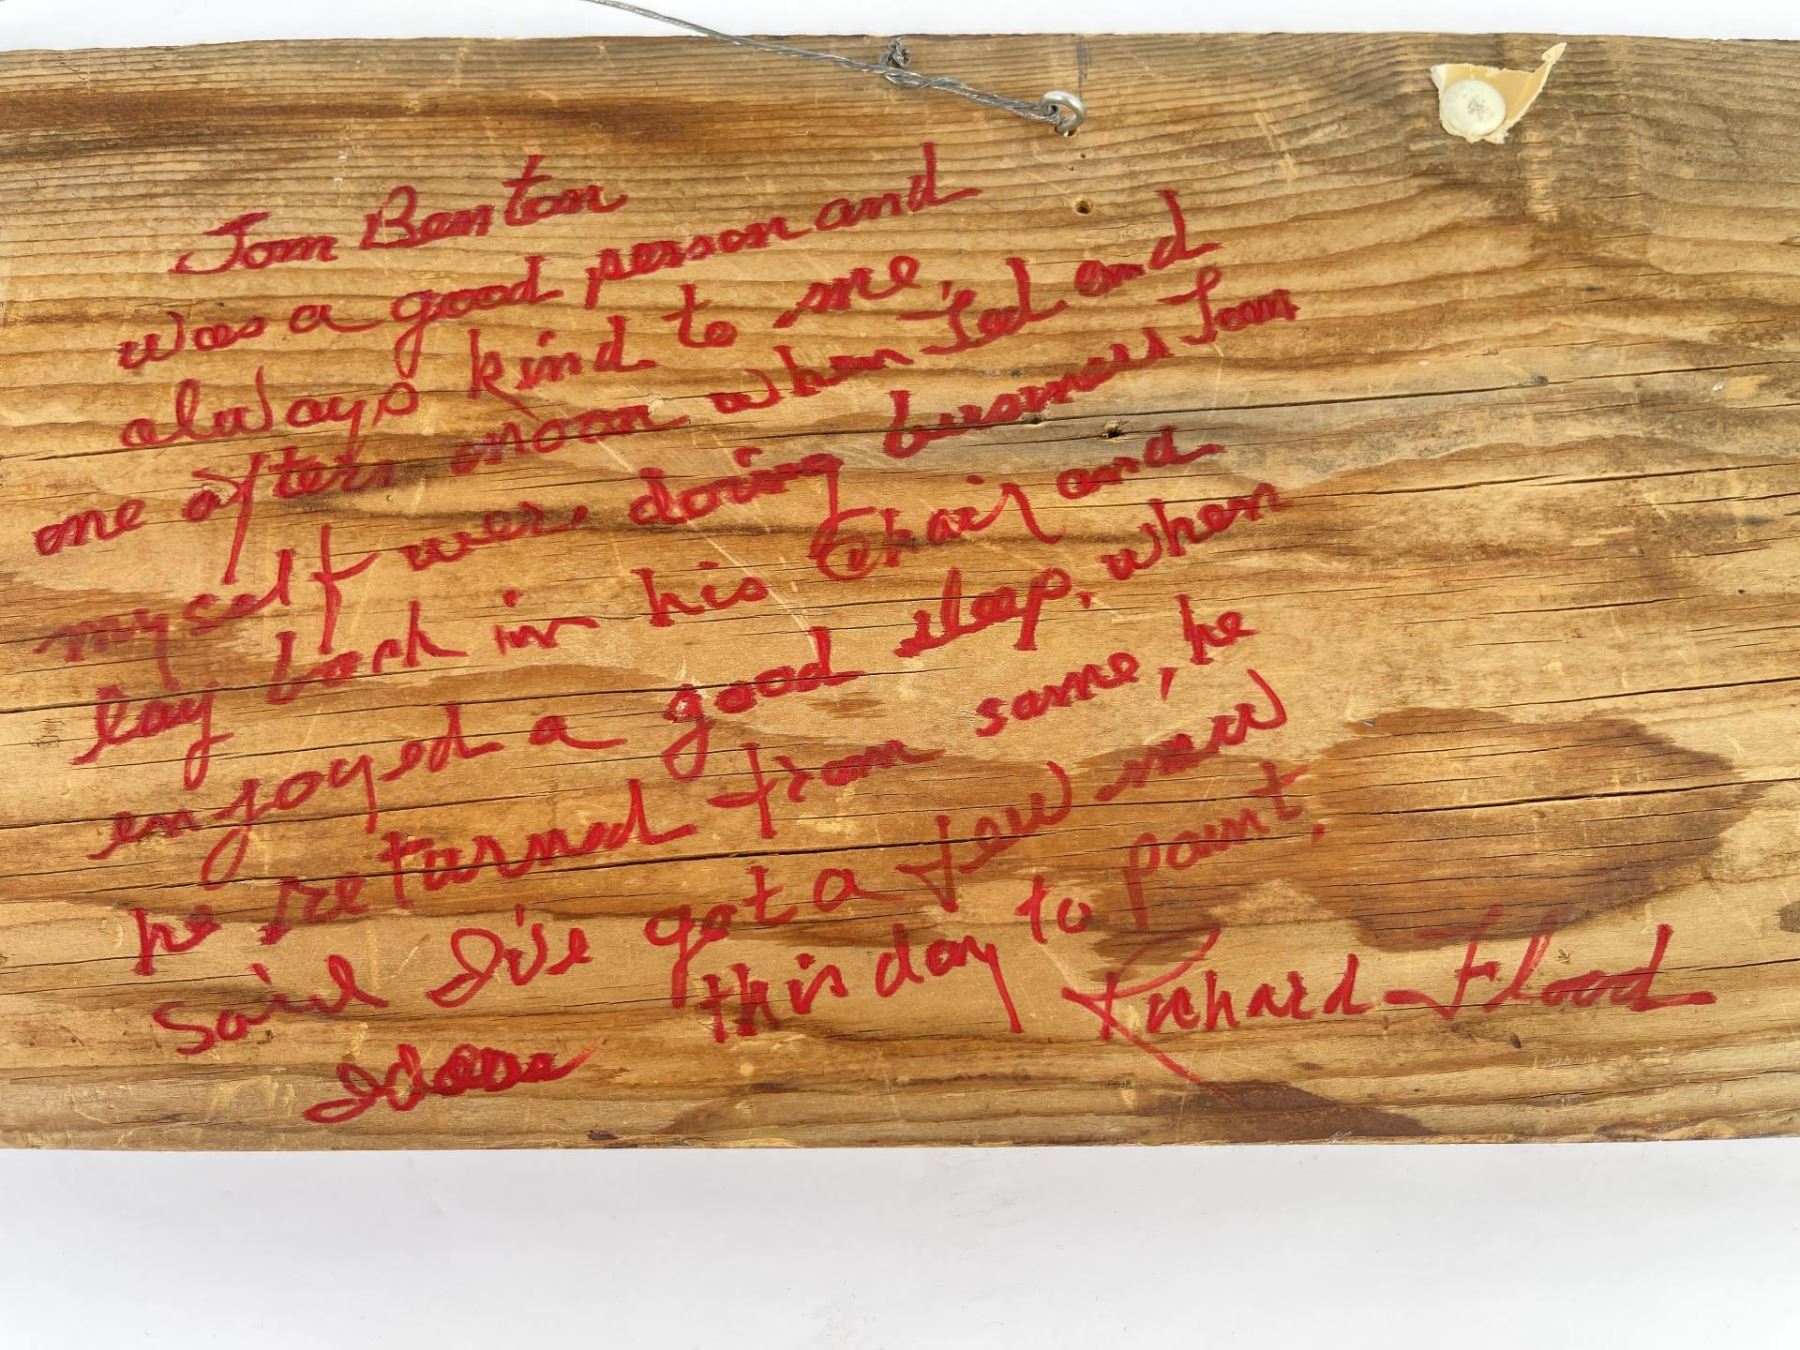 Tom Benton
was a good person and
always kind to me,
one aftern noon when Ted and
myself were doing business Tom
lay back in his Chair and
enjoyed a good sleep, when
he returned from same, he
said I've got a few new
Ideas this day to paint,
Richard Flood